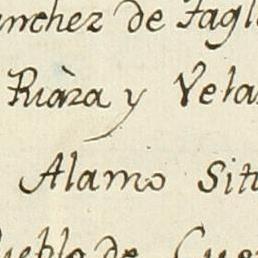 nchez de Tagl
Riàza y Vela
Alamo Sit
ueblo de Cue